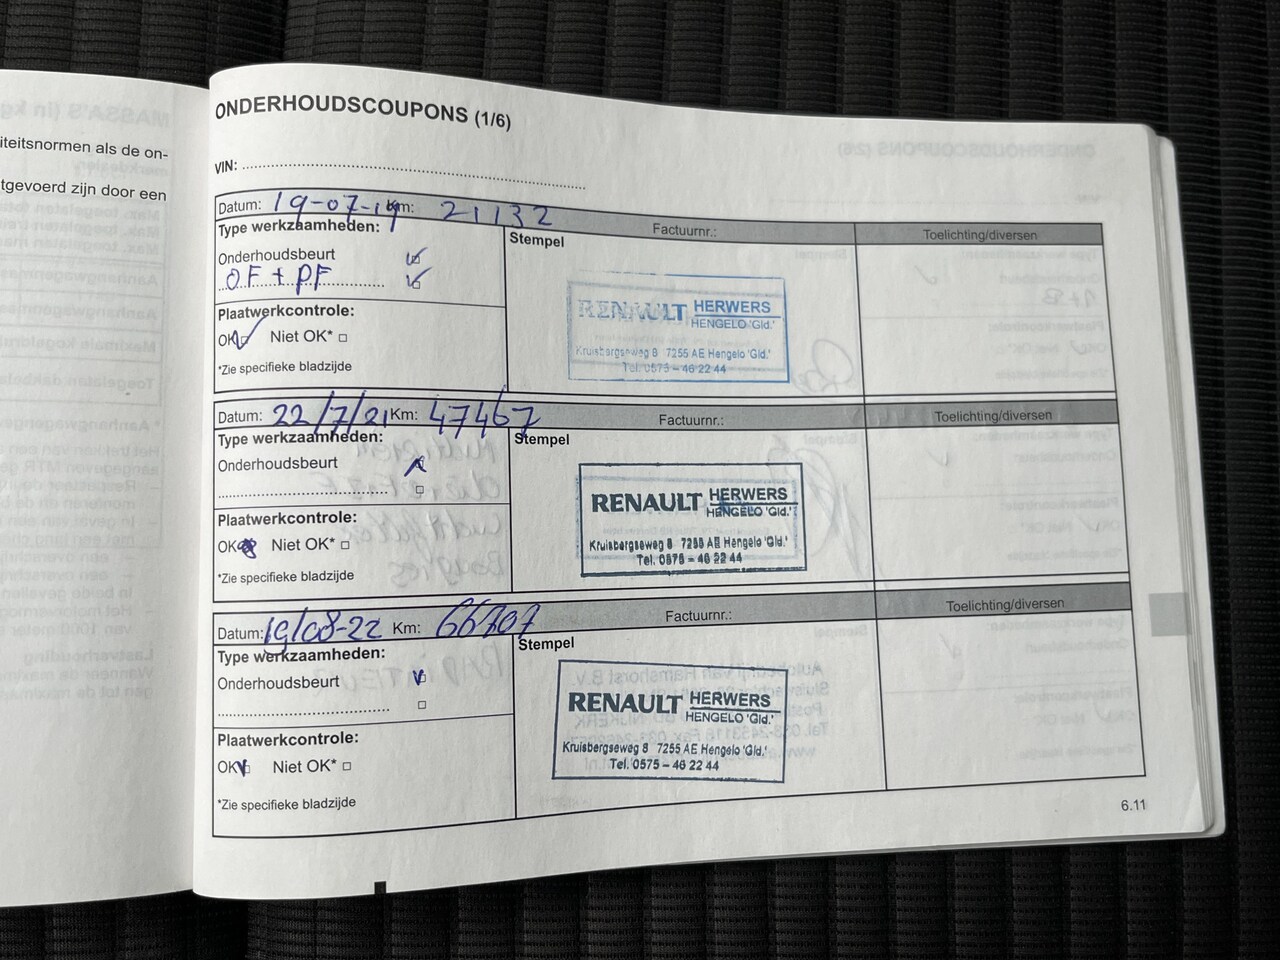 iteitsnormen als de on-
tgevoerd zijn door een
ONDERHOUDSCOUPONS (1/6)
VIN:
Datum: 19-07-19 Km: 21132 Factuurnr.: Toelichting/diversen
Type werkzaamheden:
Stempel
Onderhoudsbeurt
OF + PF
Plaatwerkcontrole:
OK Niet OK*
*Zie specifieke bladzijde
RENAULT HERWERS
HENGELO 'Gld.'
Kruisbergseweg 8 7255 AE Hengelo 'Gld.'
Tel. 0575 - 46 22 44
Datum: 22/7/21 Km: 47467 Factuurnr.: Toelichting/diversen
Type werkzaamheden:
Stempel
Onderhoudsbeurt
Plaatwerkcontrole:
OK Niet OK*
*Zie specifieke bladzijde
RENAULT HERWERS
HENGELO 'Gld.'
Kruisbergseweg 8 7255 AE Hengelo 'Gld.'
Tel. 0575 - 46 22 44
Datum: 19/08-22 Km: 66707 Factuurnr.: Toelichting/diversen
Type werkzaamheden:
Stempel
Onderhoudsbeurt
Plaatwerkcontrole:
OK Niet OK*
*Zie specifieke bladzijde
RENAULT HERWERS
HENGELO 'Gld.'
Kruisbergseweg 8 7255 AE Hengelo 'Gld.'
Tel. 0575 - 46 22 44
6.11